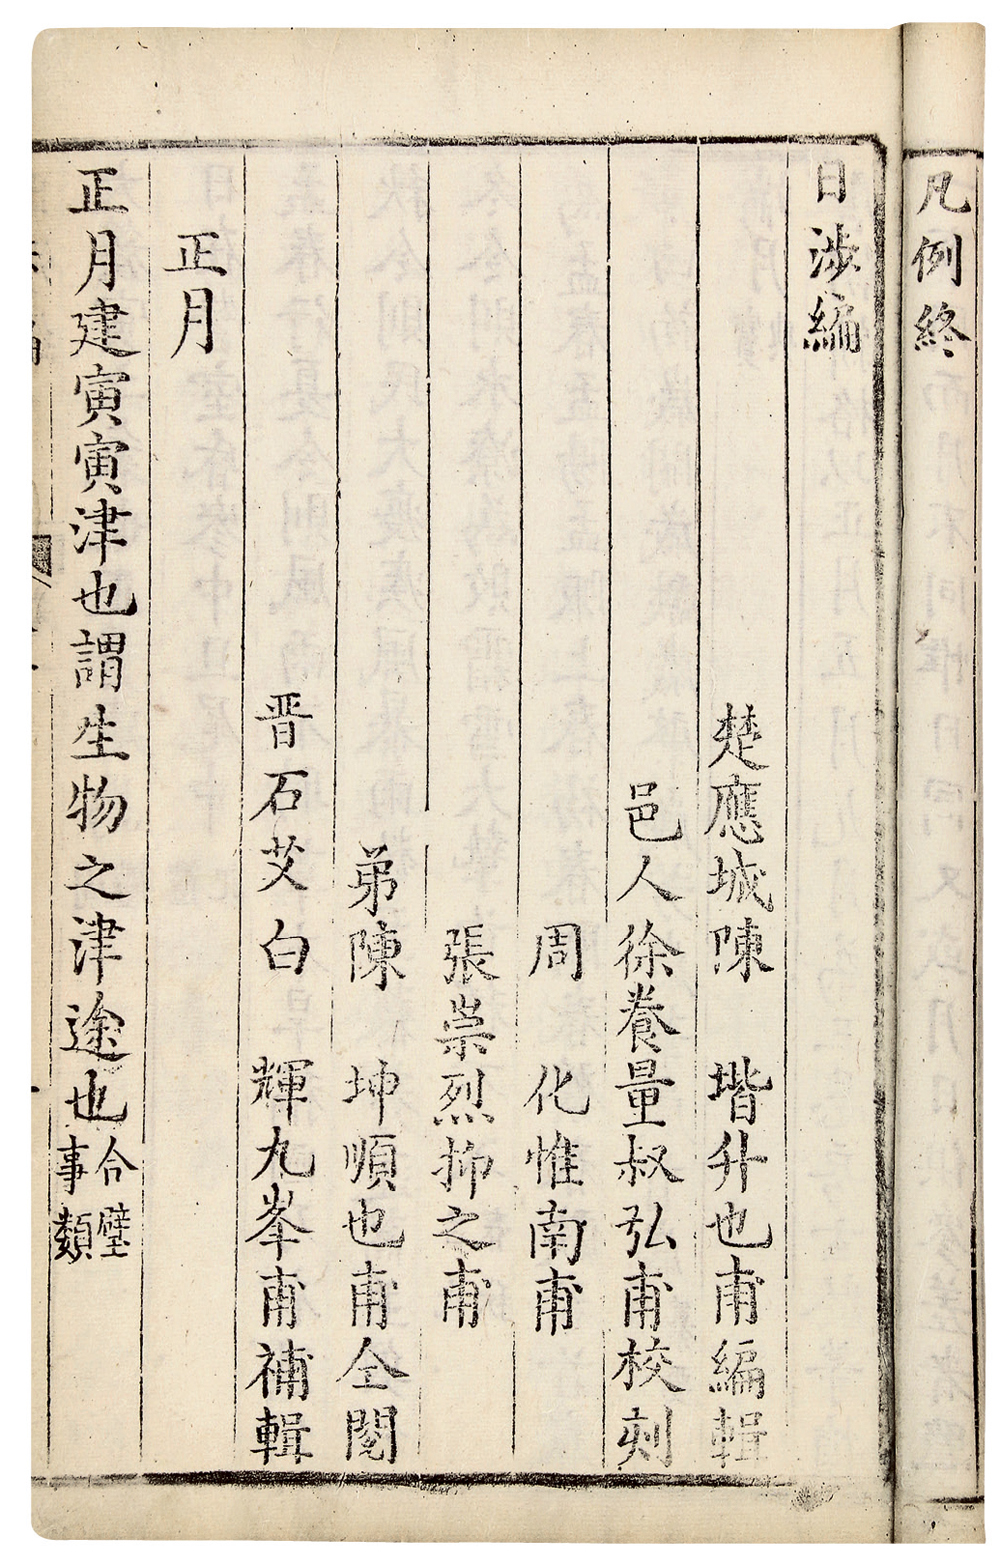 凡例終
日涉編
楚應城陳　堦升也甫編輯
邑人徐養量叔弘甫校刻
周　化惟南甫
張崇烈抑之甫
弟陳　坤順也甫仝閱
晋石艾白　輝九峯甫補輯
正月
正月建寅寅津也謂生物之津途也合璧
事類